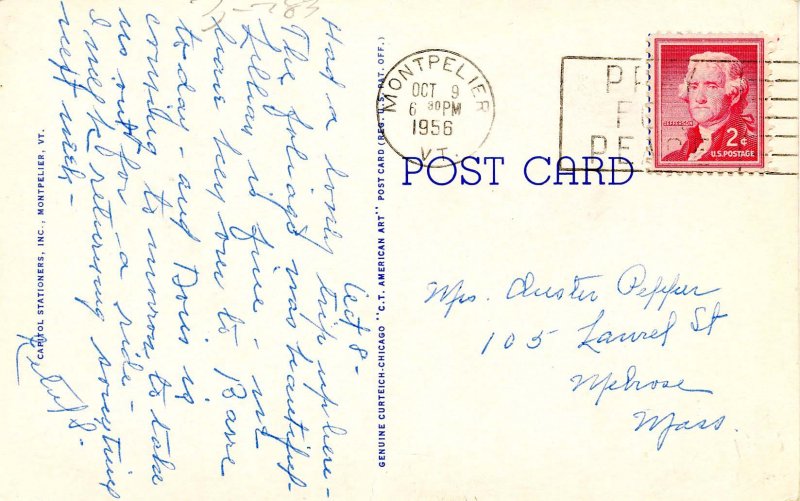 Oct 8 -
Had a lovely trip up here -
The foliage was beautiful -
Lillian is fine - we
have her over to Barre
today - and Doris is
coming to morrow to take
us out for a ride -
I will be returning sometime
next week -
CAPITOL STATIONERS, INC., MONTPELIER, VT.
GENUINE CURTEICH-CHICAGO "C.T. AMERICAN ART" POST CARD (REG. U.S. PAT. OFF.)
MONTPELIER
OCT 9
6 30 PM
1956
VT.
PRAY
FOR
PEACE
JEFFERSON
2¢
U.S. POSTAGE
POST CARD
Mrs. Chester Pepper
105 Laurel St
Melrose
Mass.